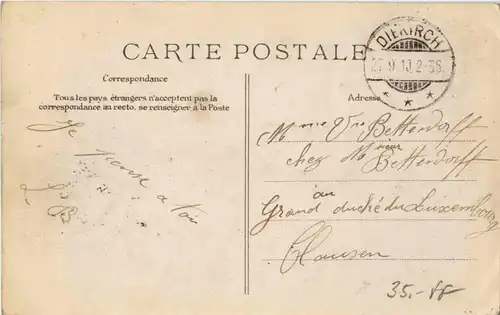 CARTE POSTALE
Correspondance
Tous les pays étrangers n'acceptent pas la
correspondance au recto, se renseigner à la Poste
Adresse
DIEKIRCH
2-3S.
Je pense a toi
Mme Vve Bettendorff
chez Msieur Bettendorff
au
Grand duché du Luxembourg
Clausen
35.-